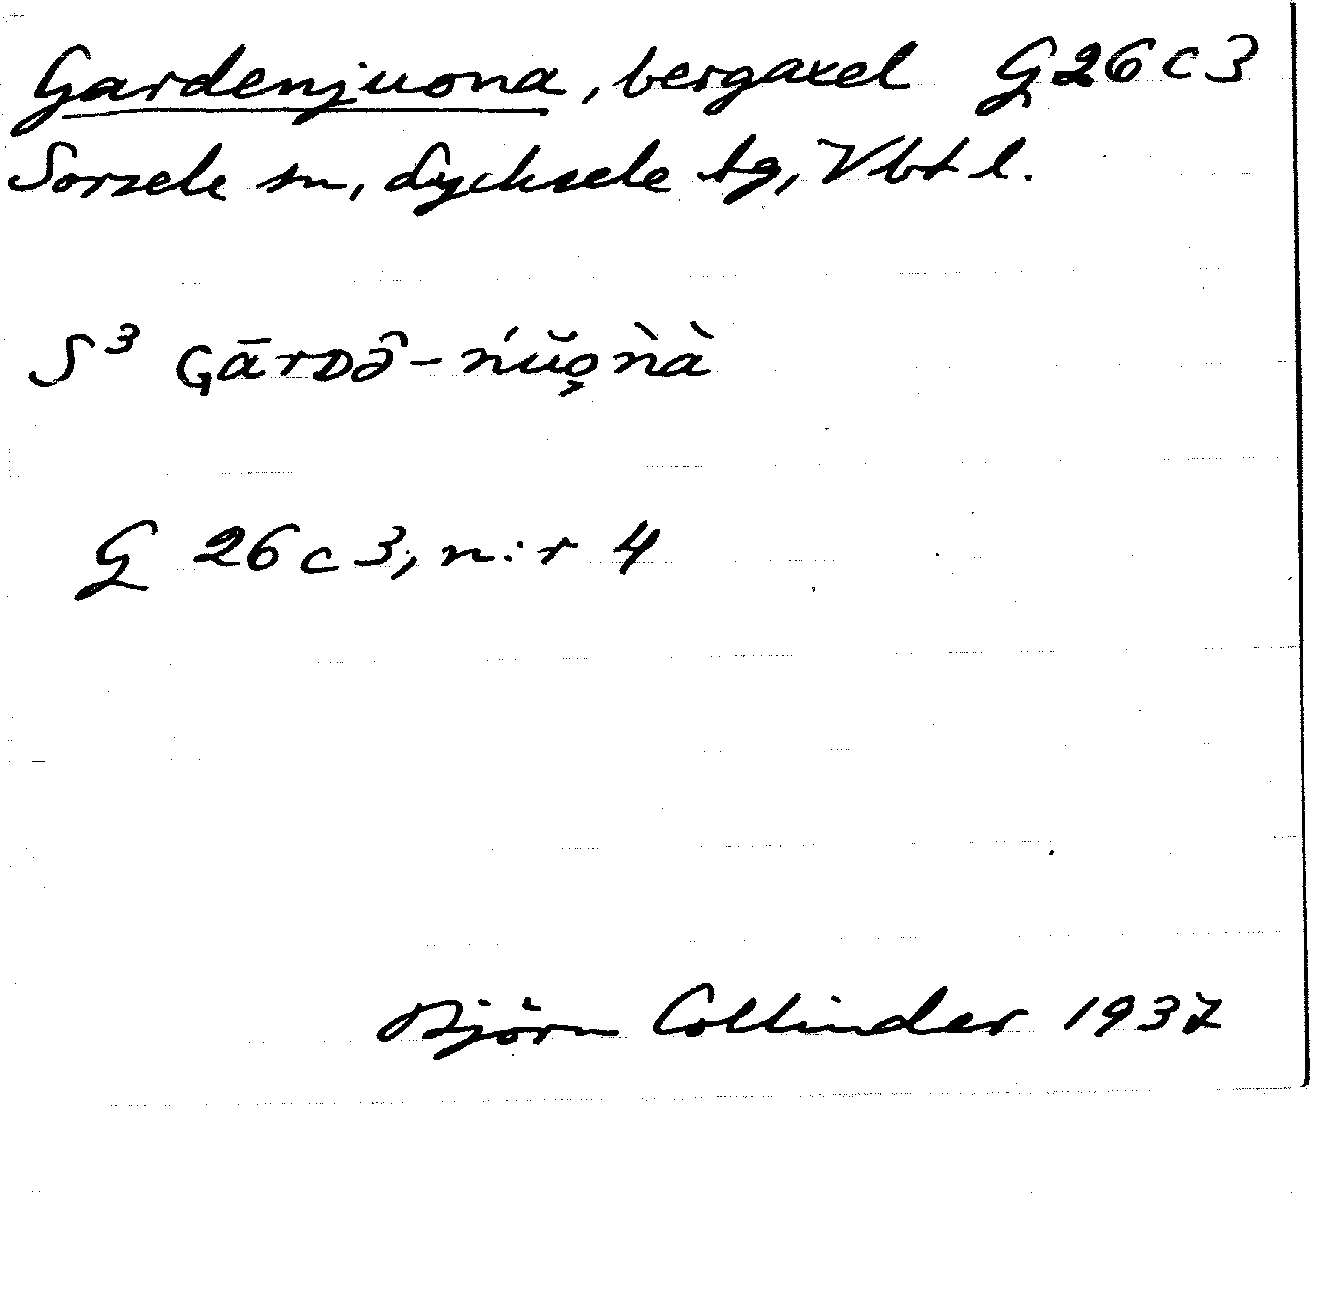 Gardenjuona, bergaxel G26c3
Sorsele sn, Lycksele tg, Vbt l.
S³ Gārᴅə̑-ńŭo̧ǹà
G 26c3, n:r 4
Björn Collinder 1937